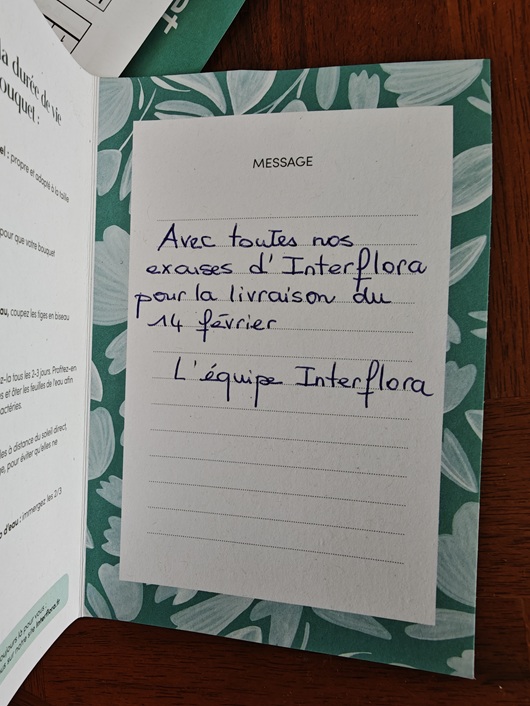 la durée de vie
propre et adapté à la taille
pour que votre bouquet
coupez les tiges en biseau
tous les 2-3 jours. Profitez-en
et ôter les feuilles de l'eau afin
à distance du soleil direct,
pour éviter qu'elles ne
d'eau : immergez les 2/3
là pour vous
sur notre site interflora.fr
MESSAGE
Avec toutes nos
excuses d'Interflora
pour la livraison du
14 février
L'équipe Interflora